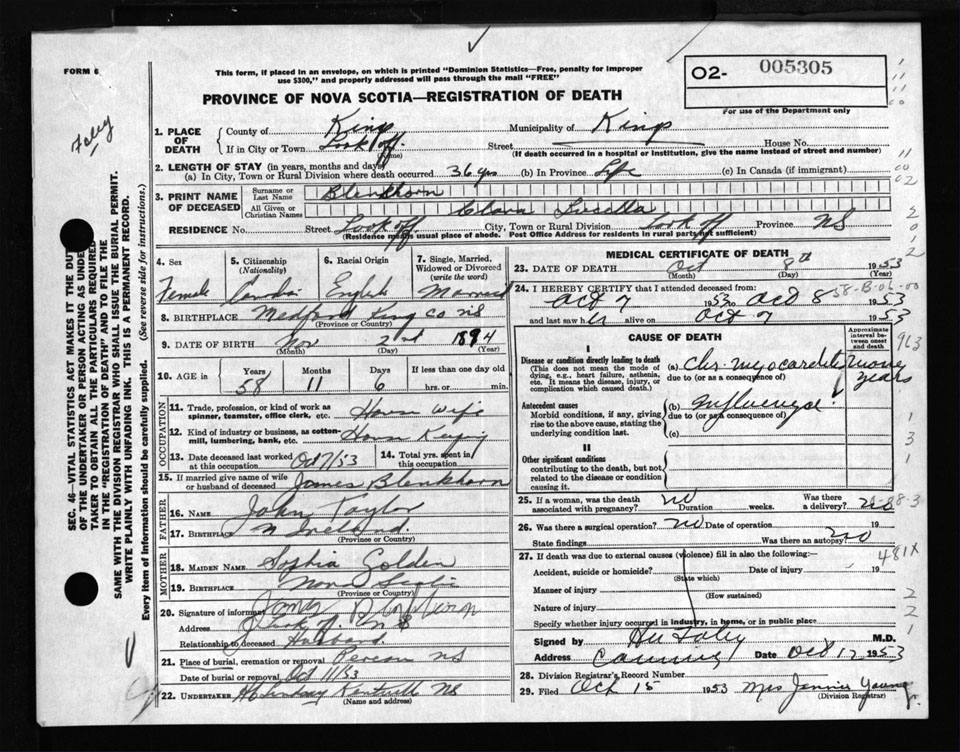 FORM 6
This form, if placed in an envelope, on which is printed "Dominion Statistics—Free, penalty for improper
use $300," and properly addressed will pass through the mail "FREE"
PROVINCE OF NOVA SCOTIA—REGISTRATION OF DEATH
O2- 005305
For use of the Department only
Foley
SEC. 46—VITAL STATISTICS ACT MAKES IT THE DUTY
OF THE UNDERTAKER OR PERSON ACTING AS UNDER-
TAKER TO OBTAIN ALL THE PARTICULARS REQUIRED
IN THE "REGISTRATION OF DEATH" AND TO FILE THE
SAME WITH THE DIVISION REGISTRAR WHO SHALL ISSUE THE BURIAL PERMIT.
WRITE PLAINLY WITH UNFADING INK. THIS IS A PERMANENT RECORD.
Every item of information should be carefully supplied. (See reverse side for instructions.)
1. PLACE OF DEATH County of Kings Municipality of Kings
If in City or Town Look off. (Name) Street House No.
(If death occurred in a hospital or institution, give the name instead of street and number)
2. LENGTH OF STAY (in years, months and days)
(a) In City, Town or Rural Division where death occurred 36 yrs (b) In Province Life (c) In Canada (if immigrant)
3. PRINT NAME OF DECEASED Surname or Last Name Blenkhorn
All Given or Christian Names Clara Lucilla
RESIDENCE No. Street Look off. City, Town or Rural Division Look off Province NS
(Residence means usual place of abode. Post Office Address for residents in rural parts not sufficient)
4. Sex Female
5. Citizenship (Nationality)
6. Racial Origin English
7. Single, Married, Widowed or Divorced (write the word) Married
8. BIRTHPLACE Medford Kings Co NS
(Province or Country)
9. DATE OF BIRTH Nov 2nd 1894
(Month) (Day) (Year)
10. AGE in Years Months Days If less than one day old
58 11 6 hrs. or min.
OCCUPATION
11. Trade, profession, or kind of work as spinner, teamster, office clerk, etc. House Wife
12. Kind of industry or business, as cotton-mill, lumbering, bank, etc. House Keeping
13. Date deceased last worked at this occupation Oct 7/53 14. Total yrs. spent in this occupation
15. If married give name of wife or husband of deceased James Blenkhorn
FATHER
16. NAME John Taylor
17. BIRTHPLACE N Ireland.
(Province or Country)
MOTHER
18. MAIDEN NAME Sophia Golden
19. BIRTHPLACE Nova Scotia
(Province or Country)
20. Signature of informant James Blenkhorn
Address Look off. NS
Relationship to deceased Husband
21. Place of burial, cremation or removal NS
Date of burial or removal Oct 11/53
22. UNDERTAKER Kentville NS
(Name and address)
MEDICAL CERTIFICATE OF DEATH
23. DATE OF DEATH Oct 8th 1953
(Month) (Day) (Year)
24. I HEREBY CERTIFY that I attended deceased from:
Oct 7 1953 to Oct 8 1953
and last saw her alive on Oct 7 1953
CAUSE OF DEATH
Approximate interval between onset and death
I
Disease or condition directly leading to death
(This does not mean the mode of dying, e.g., heart failure, asthenia, etc. It means the disease, injury, or complication which caused death.)
(a) Chr. myocarditis many years
due to (or as a consequence of)
Antecedent causes
Morbid conditions, if any, giving rise to the above cause, stating the underlying condition last.
(b) Influenza
due to (or as a consequence of)
(c)
II
Other significant conditions
contributing to the death, but not related to the disease or condition causing it.
25. If a woman, was the death associated with pregnancy? no Duration weeks. Was there a delivery? no
26. Was there a surgical operation? no Date of operation 19
State findings Was there an autopsy? no
27. If death was due to external causes (violence) fill in also the following:—
481X
Accident, suicide or homicide? Date of injury 19
(State which)
Manner of injury
(How sustained)
Nature of injury
Specify whether injury occurred in industry, in home, or in public place
Signed by Foley M.D.
Address Canning Date Oct 1953
28. Division Registrar's Record Number
29. Filed Oct 15 1953 Mrs Jennie Young
(Division Registrar)